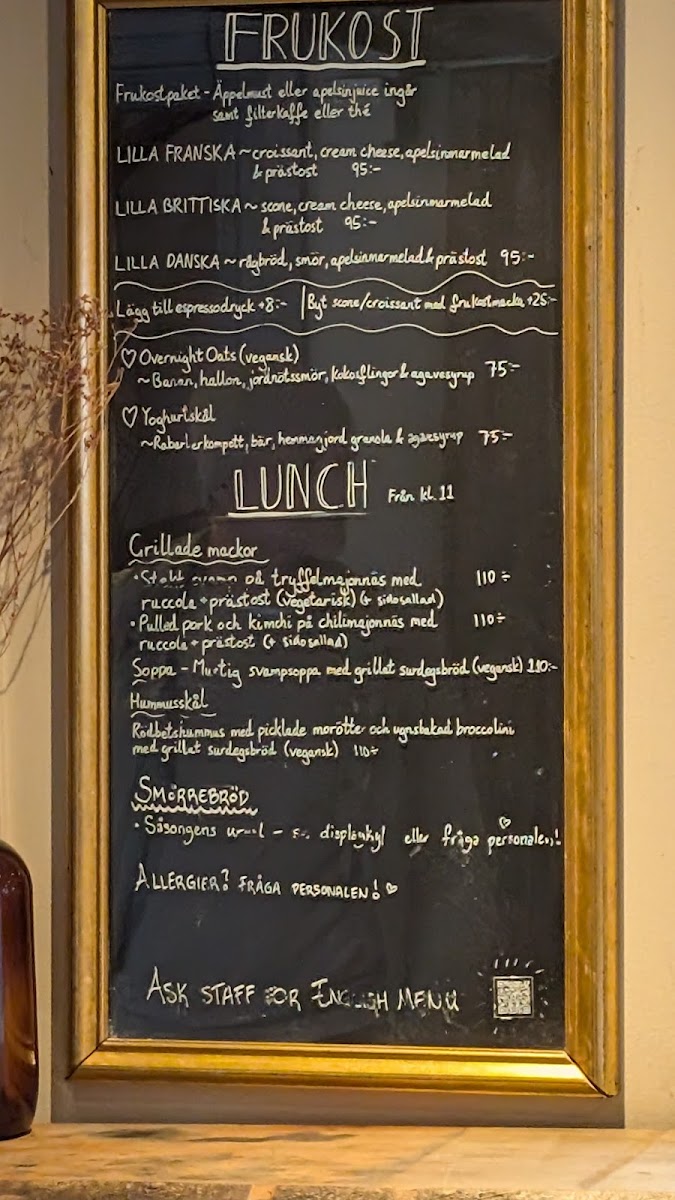 FRUKOST
Frukostpaket - Äppelmust eller apelsinjuice ingår
samt filterkaffe eller thé
LILLA FRANSKA ~ croissant, cream cheese, apelsinmarmelad
& prästost 95:-
LILLA BRITTISKA ~ scone, cream cheese, apelsinmarmelad
& prästost 95:-
LILLA DANSKA ~ rågbröd, smör, apelsinmarmelad & prästost 95:-
Lägg till espressodryck +8:- | Byt scone/croissant mot frukostmacka +25:-
♡ Overnight Oats (vegansk)
~ Banan, hallon, jordnötssmör, kokosflingor & agavesyrup 75:-
♡ Yoghurtskål
~ Rabarberkompott, bär, hemmagjord granola & agavesyrup 75:-
LUNCH Från kl. 11
Grillade mackor
• Stekt svamp på tryffelmajonnäs med 110:-
ruccola + prästost (vegetarisk) (+ sidosallad)
• Pulled pork och kimchi på chilimajonnäs med 110:-
ruccola + prästost (+ sidosallad)
Soppa - Mustig svampsoppa med grillat surdegsbröd (vegansk) 110:-
Hummusskål
Rödbetshummus med picklade morötter och ugnsbakad broccolini
med grillat surdegsbröd (vegansk) 110:-
SMÖRREBRÖD
• Säsongens urval - displaykyl eller fråga personalen!
ALLERGIER? FRÅGA PERSONALEN! ♡
ASK STAFF FOR ENGLISH MENU